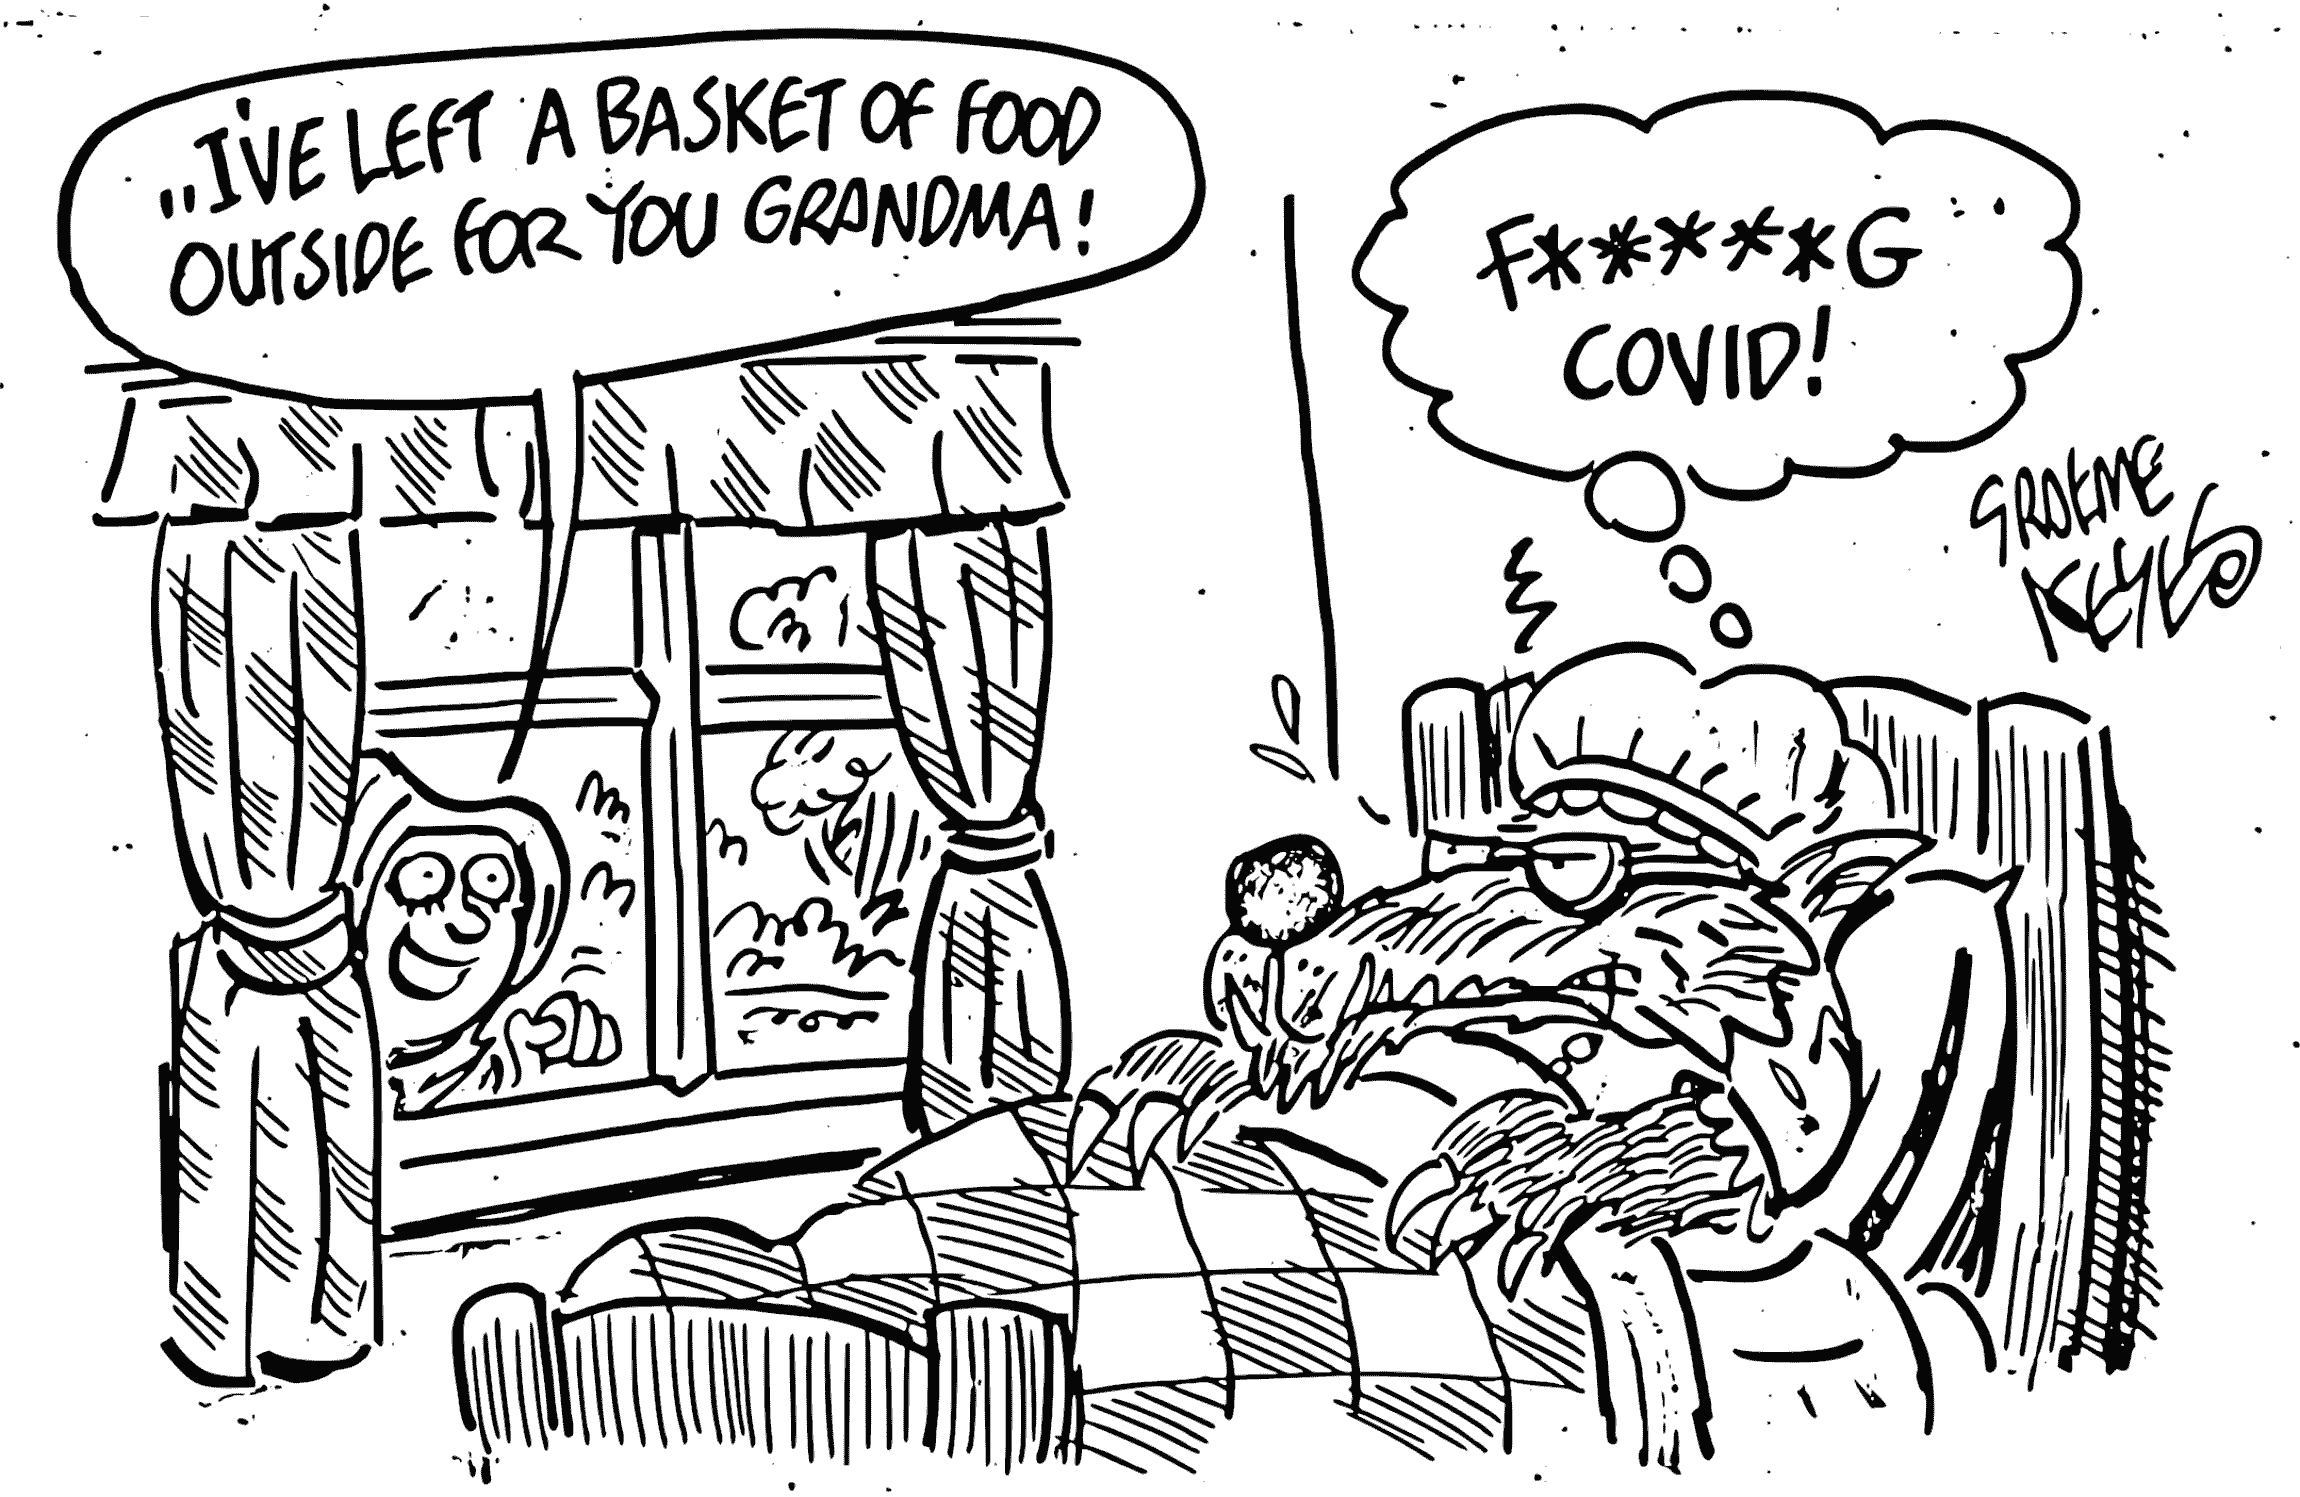 "I'VE LEFT A BASKET OF FOOD
OUTSIDE FOR YOU GRANDMA!
F*****G
COVID!
GRAEME
KEYES